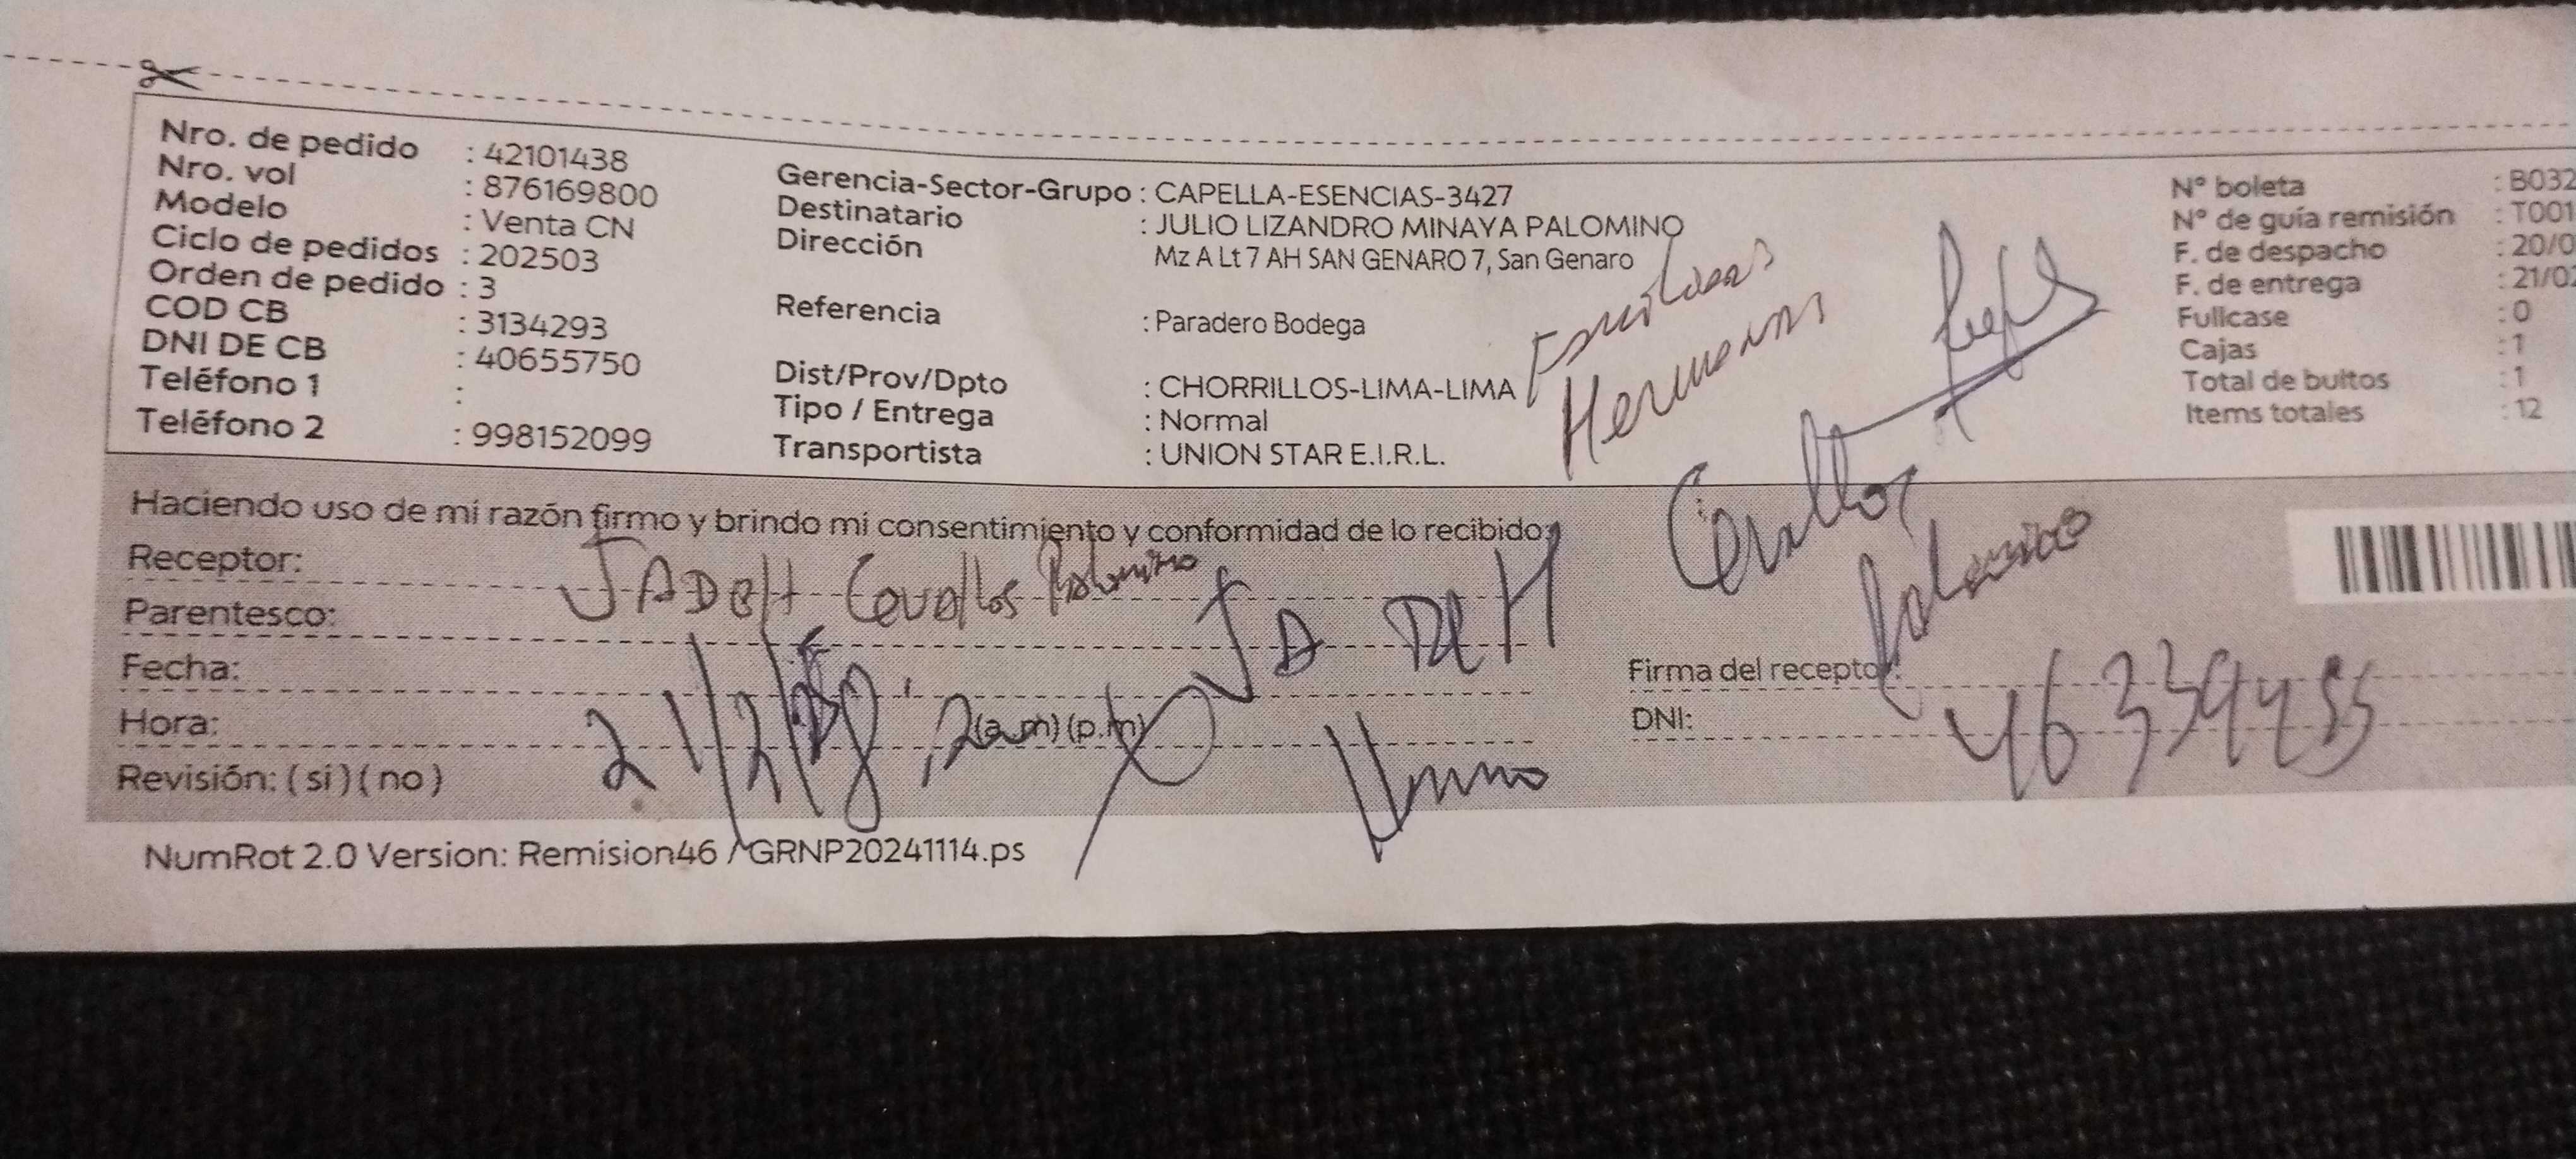 Nro. de pedido : 42101438
Nro. vol : 876169800
Modelo : Venta CN
Ciclo de pedidos : 202503
Orden de pedido : 3
COD CB : 3134293
DNI DE CB : 40655750
Teléfono 1 :
Teléfono 2 : 998152099
Gerencia-Sector-Grupo : CAPELLA-ESENCIAS-3427
Destinatario : JULIO LIZANDRO MINAYA PALOMINO
Dirección Mz A Lt 7 AH SAN GENARO 7, San Genaro
Referencia : Paradero Bodega
Dist/Prov/Dpto : CHORRILLOS-LIMA-LIMA
Tipo / Entrega : Normal
Transportista : UNION STAR E.I.R.L.
Hermanas
N° boleta : B032
N° de guía remisión : T001
F. de despacho : 20/0
F. de entrega : 21/02
Fullcase : 0
Cajas : 1
Total de bultos : 1
Items totales : 12
Haciendo uso de mi razón firmo y brindo mi consentimiento y conformidad de lo recibido:
Receptor: JADEH Cevallos Palomino
Parentesco:
Fecha: 21/2/
Hora: (a.m) (p.m)
Revisión: (si) (no)
Cevallos
Palomino
Firma del receptor:
DNI:
NumRot 2.0 Version: Remision46 / GRNP20241114.ps